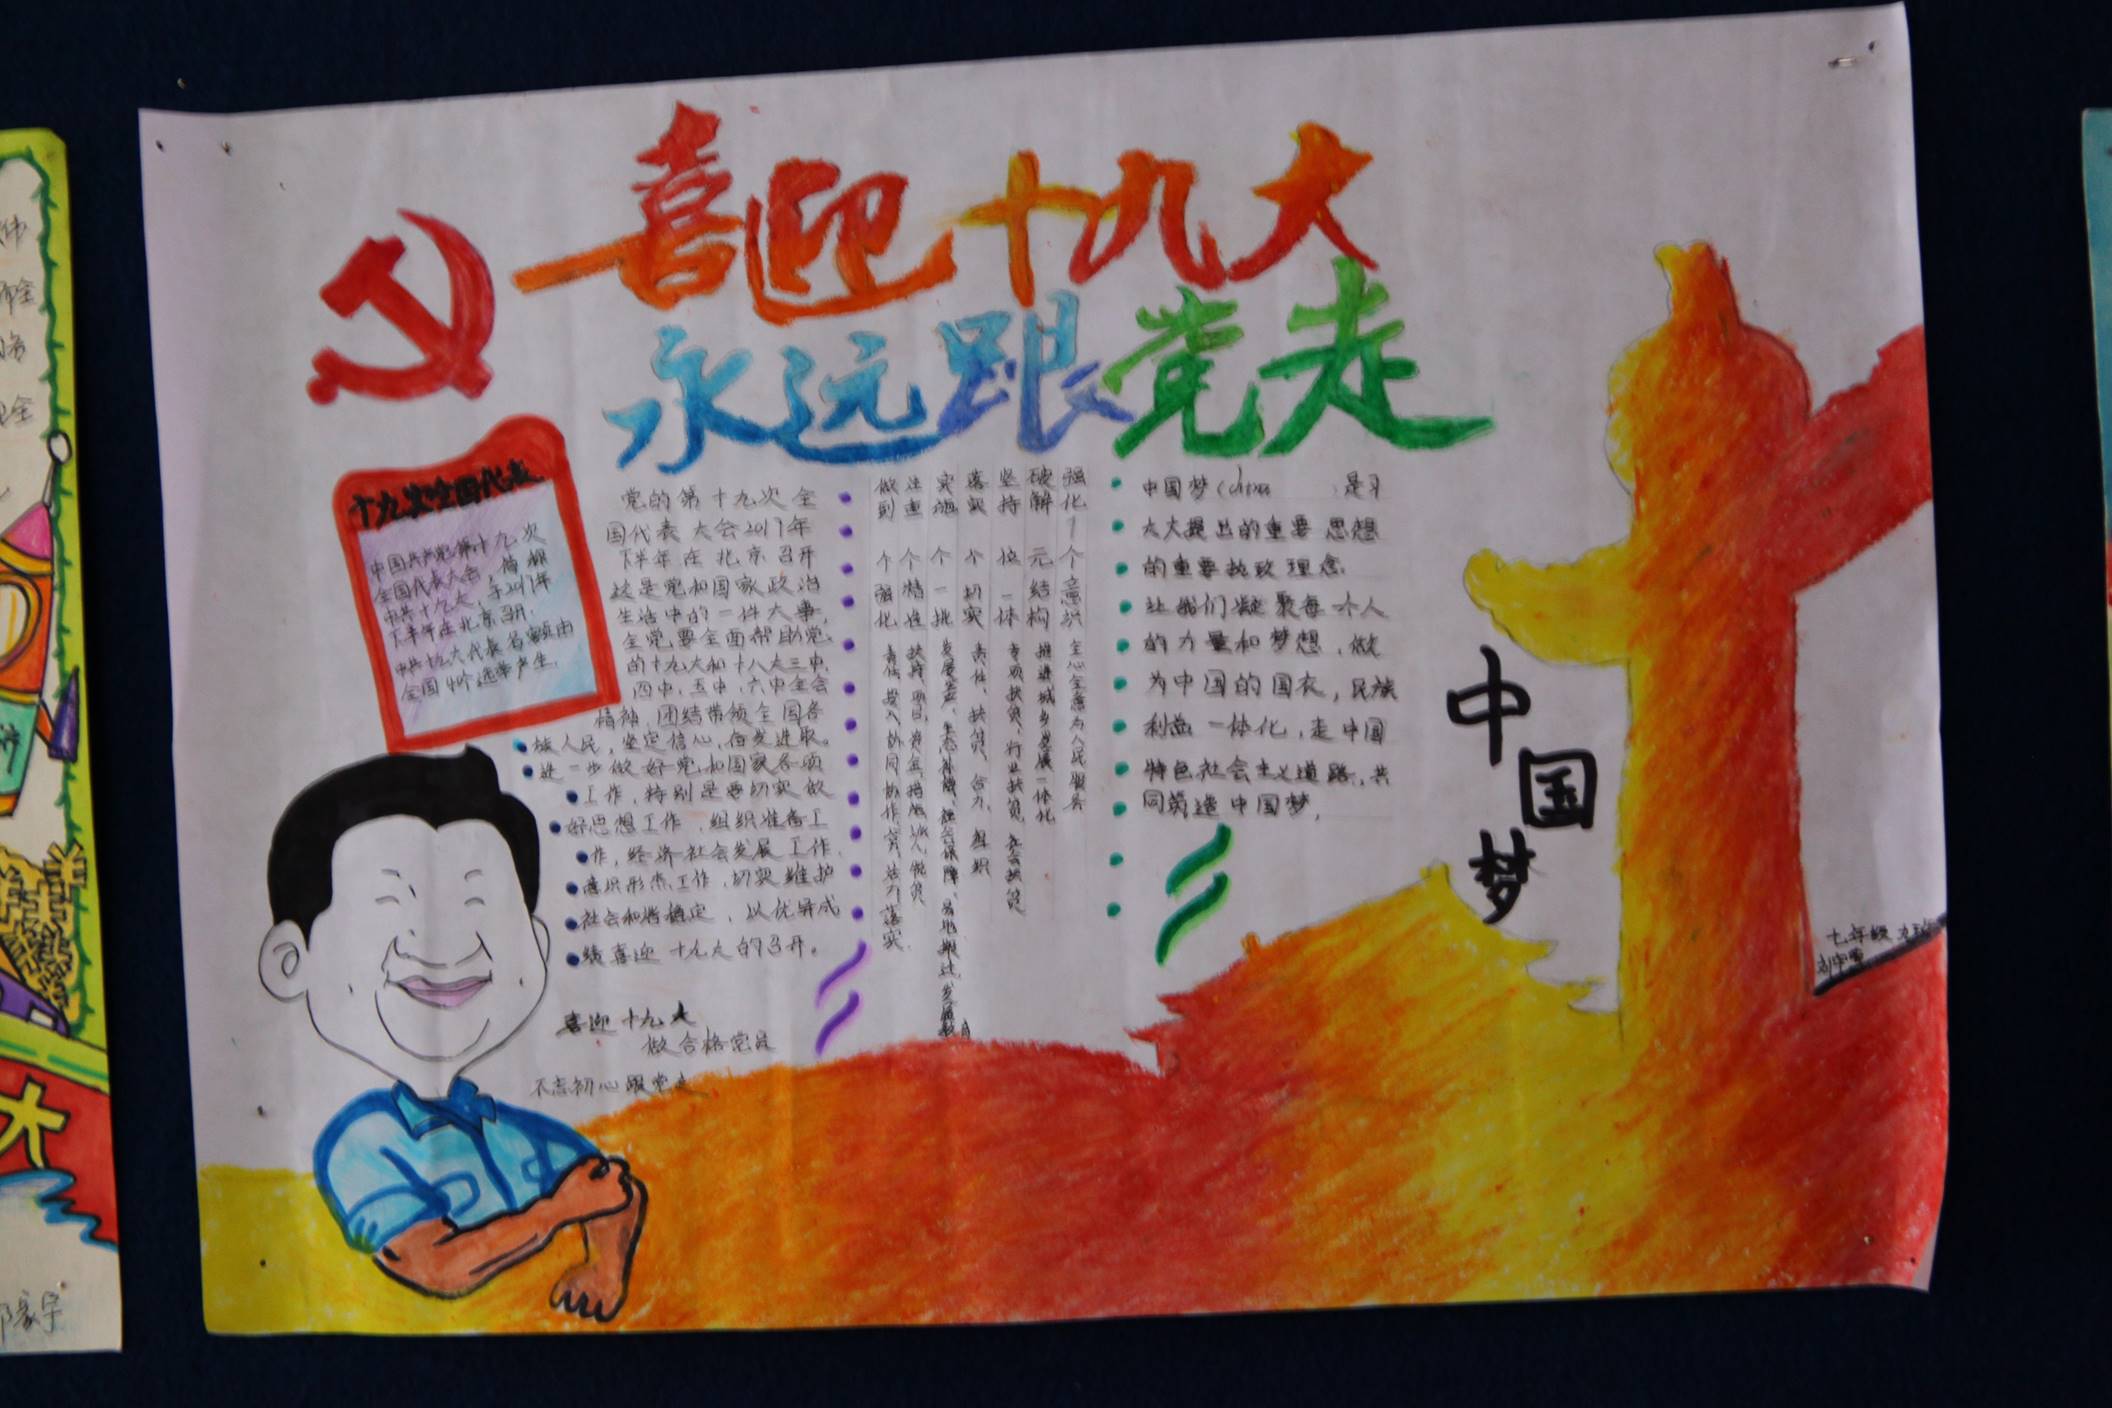 喜迎十九大
永远跟党走
十九次全国代表
中国共产党第十九次
全国代表大会，简称
中共十九大，于2017年
下半年在北京召开。
中共十九大代表名额由
全国40个选举产生。
党的第十九次全
国代表大会2017年
下半年在北京召开
这是党和国家政治
生活中的一件大事，
全党要全面帮助党
的十九大和十八大三中，
四中，五中，六中全会
精神，团结带领全国各
族人民，坚定信心，奋发进取。
进一步做好党和国家各项
工作，特别是要切实做
好思想工作，组织准备工
作，经济社会发展工作，
意识形态工作，切实维护
社会和谐稳定，以优异成
绩喜迎十九大的召开。
喜迎十九大
做合格党员
不忘初心跟党走
强化1个意识 全心全意为人民服务
破解 元结构 推进城乡发展一体化
坚持 位一体 专项扶贫、行业扶贫、社会扶贫
落实 个切实
实施 个一批
注重 个精准
做到 个强化
中国梦（china ）是习
大大提出的重要思想
的重要执政理念
让我们凝聚每一个人
的力量和梦想，做
为中国的国衣，民族
利益一体化，走中国
特色社会主义道路，共
同筑造中国梦，
中
国
梦
七年级
大